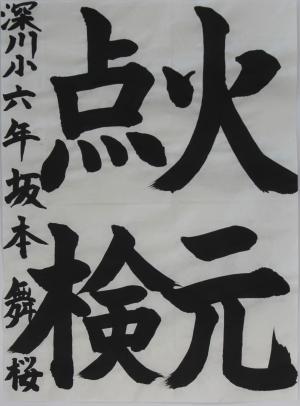 火元
点検
深川小六年坂本舞桜